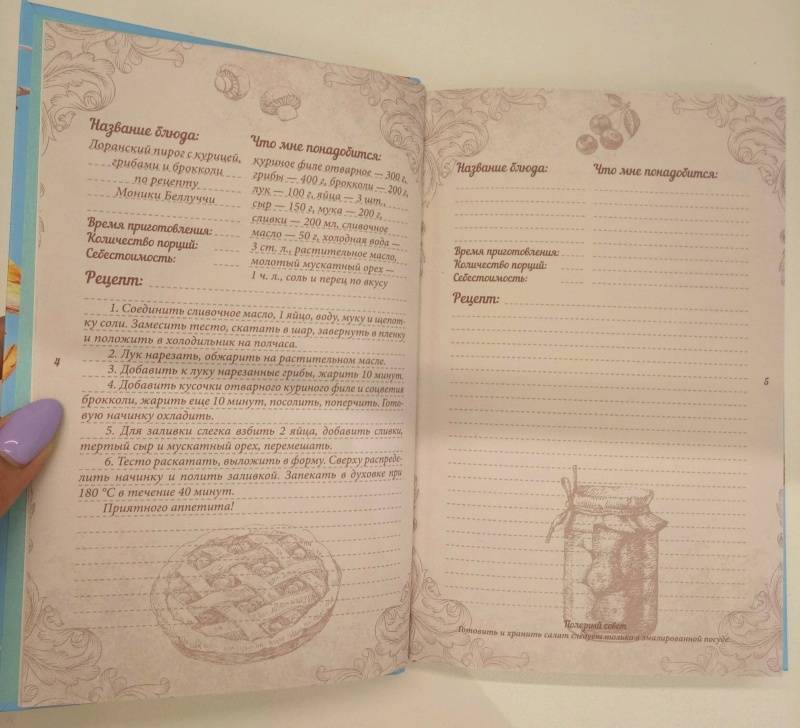 Название блюда:
Лоранский пирог с курицей,
грибами и брокколи
по рецепту
Моники Беллуччи
Время приготовления:
Количество порций:
Себестоимость:
Что мне понадобится:
куриное филе отварное — 300 г,
грибы — 400 г, брокколи — 200 г,
лук — 100 г, яйца — 3 шт.,
сыр — 150 г, мука — 200 г,
сливки — 200 мл, сливочное
масло — 50 г, холодная вода —
3 ст. л., растительное масло,
молотый мускатный орех —
1 ч. л., соль и перец по вкусу
Рецепт:
1. Соединить сливочное масло, 1 яйцо, воду, муку и щепот-
ку соли. Замесить тесто, скатать в шар, завернуть в пленку
и положить в холодильник на полчаса.
2. Лук нарезать, обжарить на растительном масле.
3. Добавить к луку нарезанные грибы, жарить 10 минут.
4. Добавить кусочки отварного куриного филе и соцветия
брокколи, жарить еще 10 минут, посолить, поперчить. Гото-
вую начинку охладить.
5. Для заливки слегка взбить 2 яйца, добавить сливки,
тертый сыр и мускатный орех, перемешать.
6. Тесто раскатать, выложить в форму. Сверху распреде-
лить начинку и полить заливкой. Запекать в духовке при
180 °C в течение 40 минут.
Приятного аппетита!
4
Название блюда:
Время приготовления:
Количество порций:
Себестоимость:
Что мне понадобится:
Рецепт:
5
Полезный совет
Готовить и хранить салат следует только в эмалированной посуде